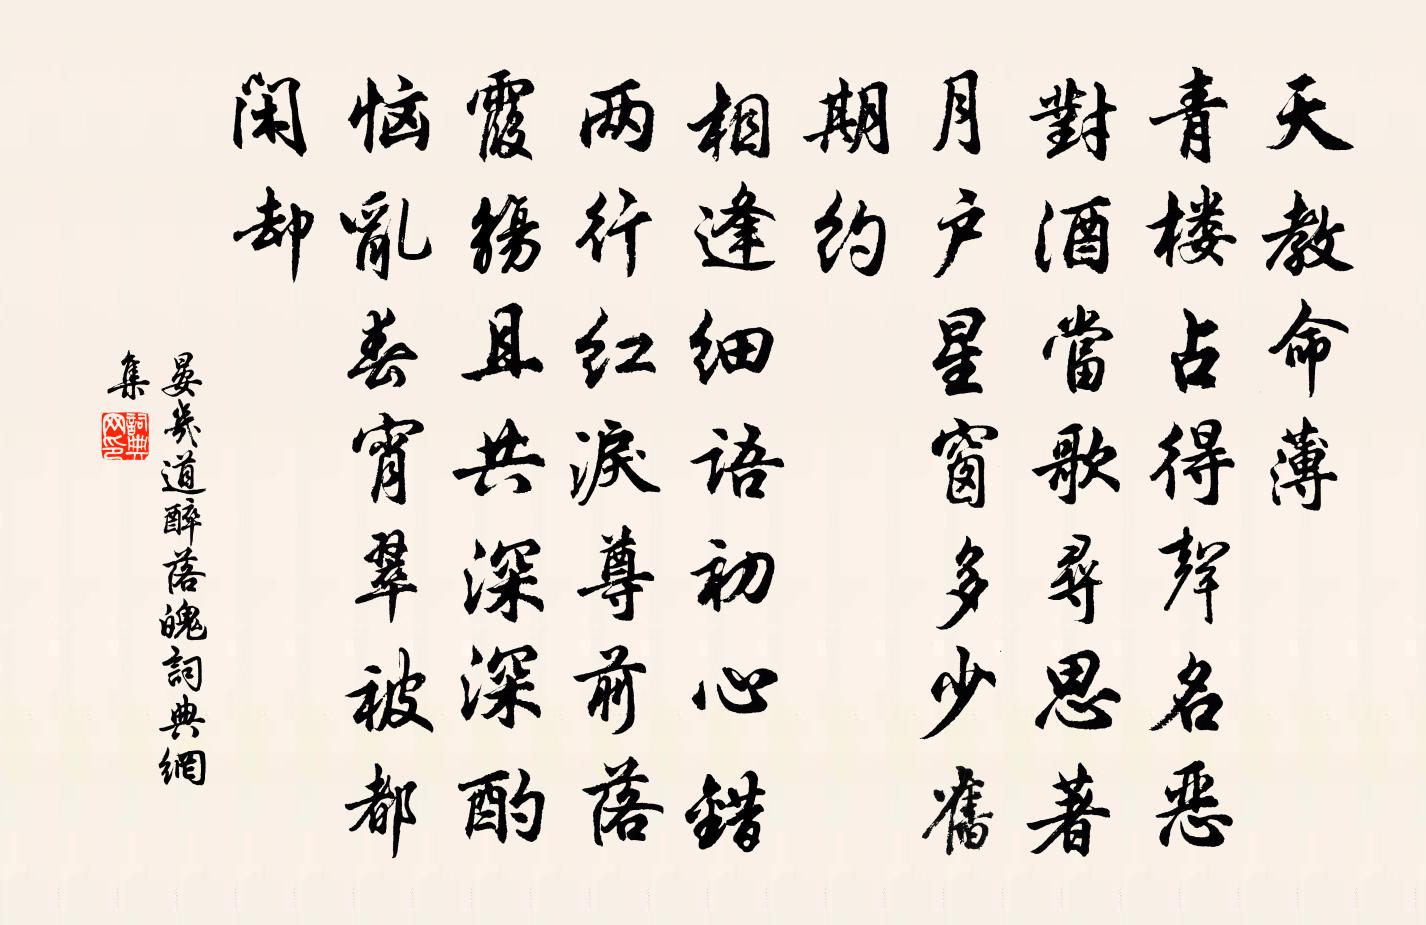 天教命薄
青楼占得聲名惡
對酒當歌尋思著
月户星窗多少舊
期約
相逢細語初心錯
两行红淚尊前落
霞觴且共深深酌
恼亂春宵翠被都
閑却
晏幾道醉落魄詞典網
集
詞典网印